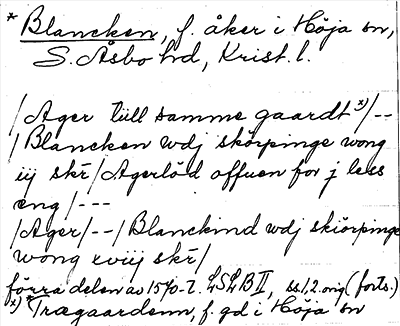 * Blancken, f. åker i Höja sn,
S. Åsbo hd, Krist. l.
/Ager till samme gaardt x)/--
/Blancken wdj skörpinge wong
iij skr/Agerlöd offuen for j less
eng/---
/Ager/--/Blanckind wdj skiörpinge
wong xviij skr/
förra delen av 1570-t. LSLB II, ss. 1, 2. orig (forts.)
x) *Trægaardenn, f. gd i Höja sn